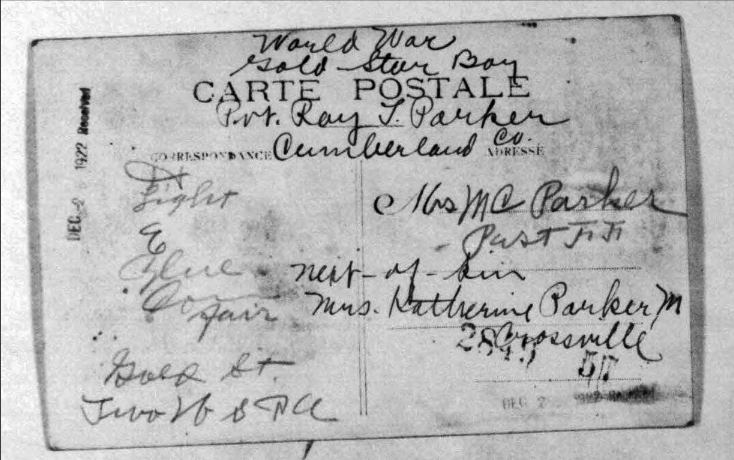 World War
Gold Star Boy
CARTE POSTALE
Pvt. Roy T. Parker
Cumberland Co.
CORRESPONDANCE
ADRESSE
DEC -2 1922 Received
Light
Blue
Hair
Gold St.
Two
Mrs MC Parker
next-of-kin
Mrs. Katherine Parker M
Crossville
DEC 2